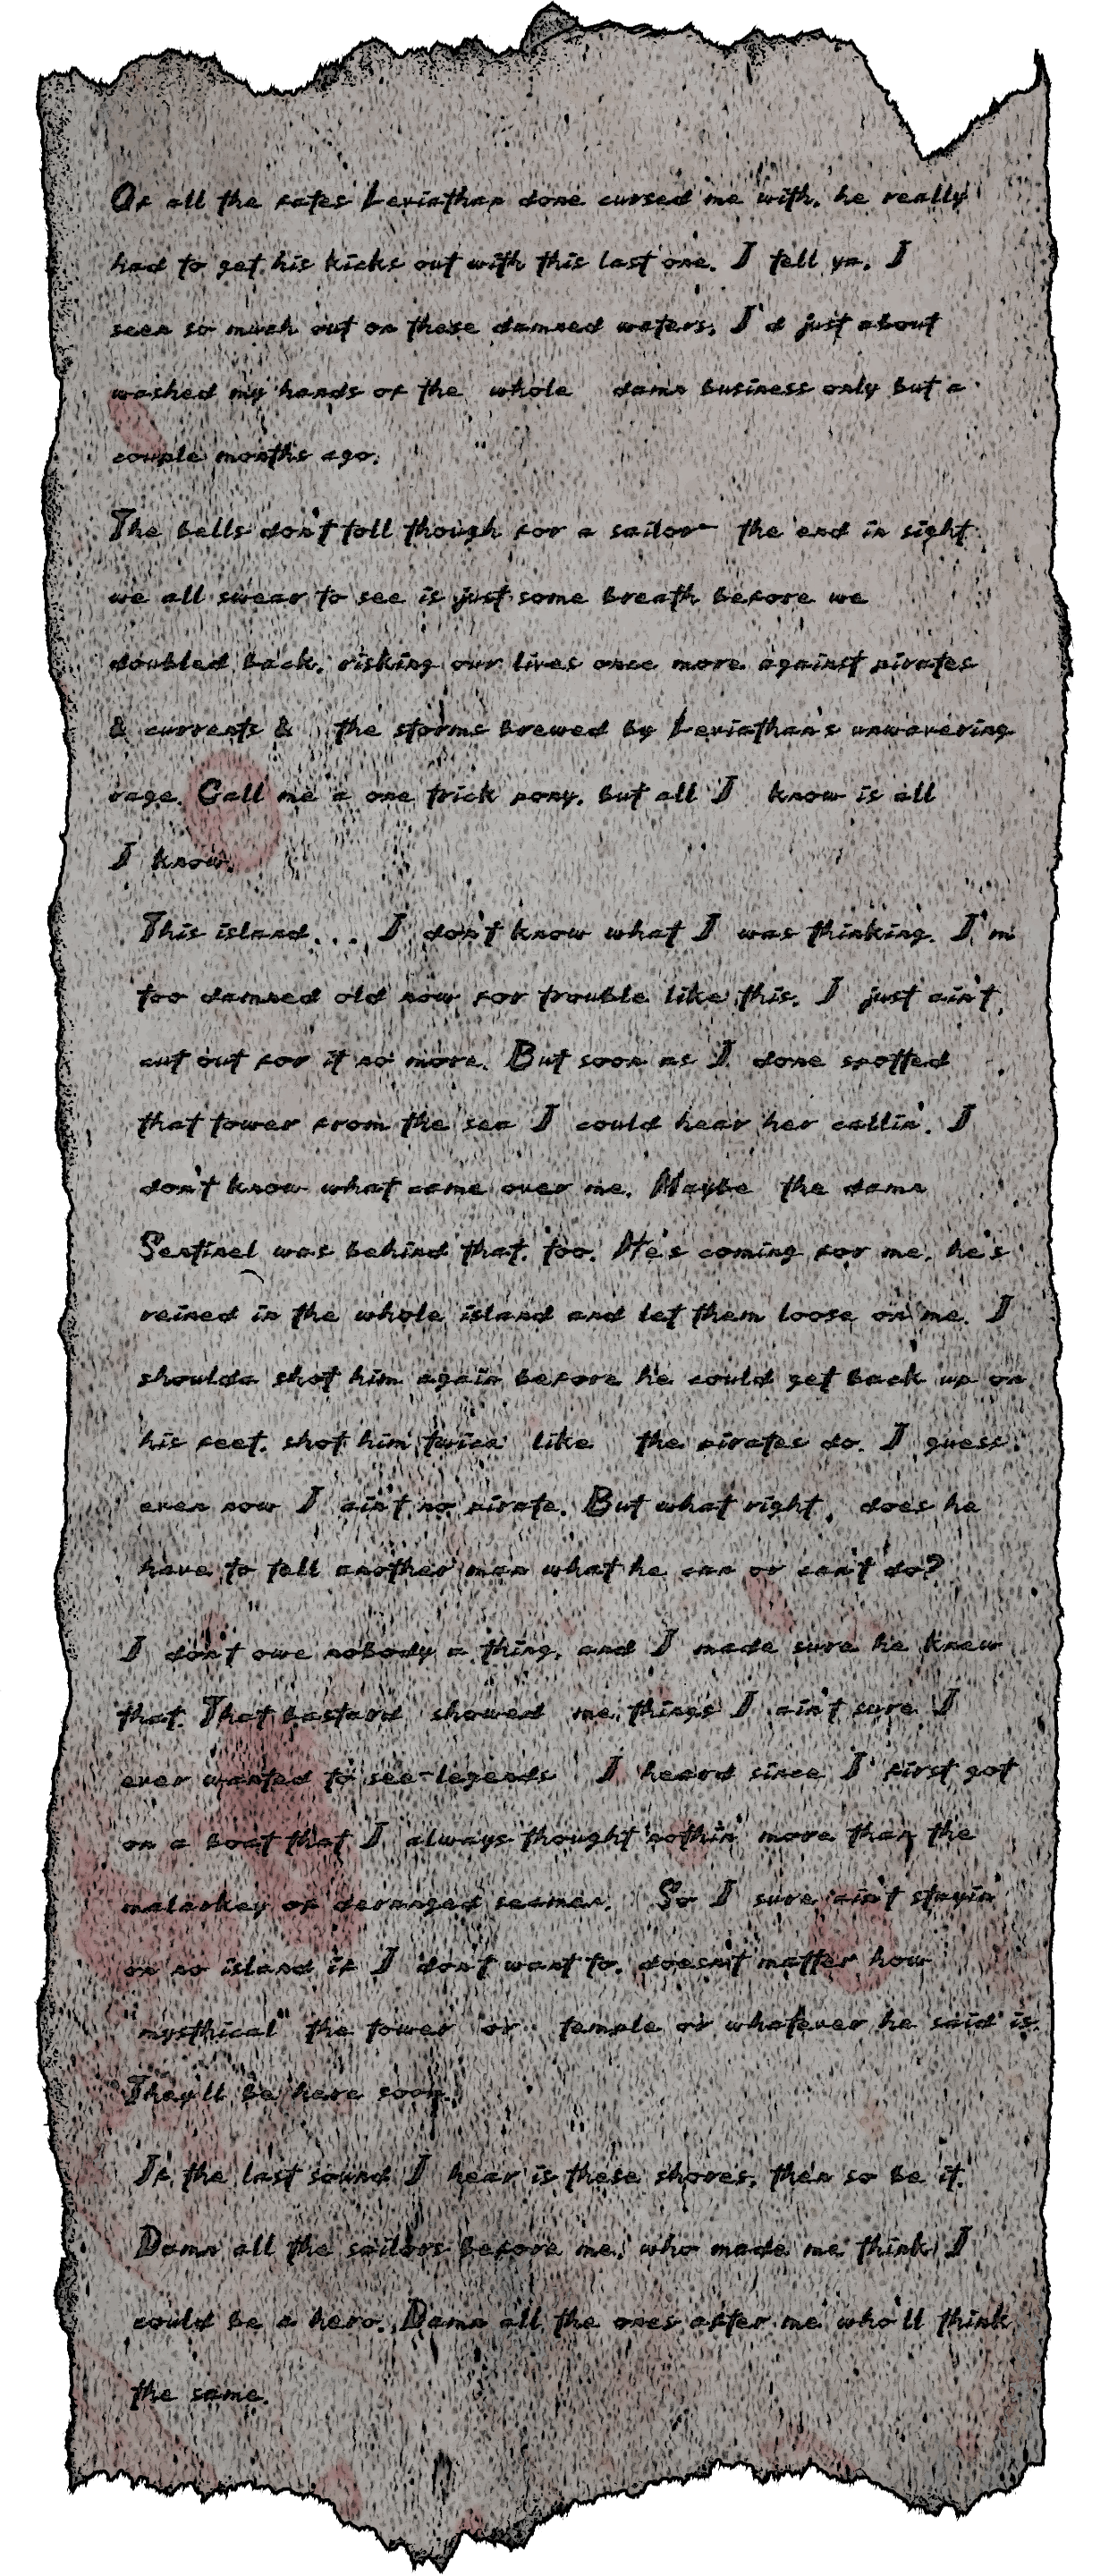 Of all the fates Leviathan done cursed me with, he really
had to get his kicks out with this last one. I tell ya, I
seen so much out on these damned waters, I'd just about
washed my hands of the whole damn business only but a
couple months ago.
The bells don't toll though for a sailor- the end in sight
we all swear to see is just some breath before we
doubled back, risking our lives once more against pirates
& currents & the storms brewed by Leviathan's unwavering
rage. Call me a one trick pony, but all I know is all
I know.
This island... I don't know what I was thinking. I'm
too damned old now for trouble like this, I just ain't
cut out for it no more. But soon as I done spotted
that tower from the sea I could hear her callin'. I
don't know what came over me. Maybe the damn
Sentinel was behind that, too. He's coming for me, he's
reined in the whole island and let them loose on me. I
shoulda shot him again before he could get back up on
his feet, shot him twice like the pirates do. I guess
even now I ain't no pirate. But what right does he
have to tell another man what he can or can't do?
I don't owe nobody a thing, and I made sure he knew
that. That bastard showed me things I ain't sure I
ever wanted to see-legends I heard since I first got
on a boat that I always thought nothin' more than the
malarkey of deranged seamen. So I sure ain't stayin'
on no island if I don't want to, doesn't matter how
"mysthical" the tower or temple or whatever he said is.
They'll be here soon.
If the last sound I hear is these shores, then so be it.
Damn all the sailors before me, who made me think I
could be a hero. Damn all the ones after me who'll think
the same.